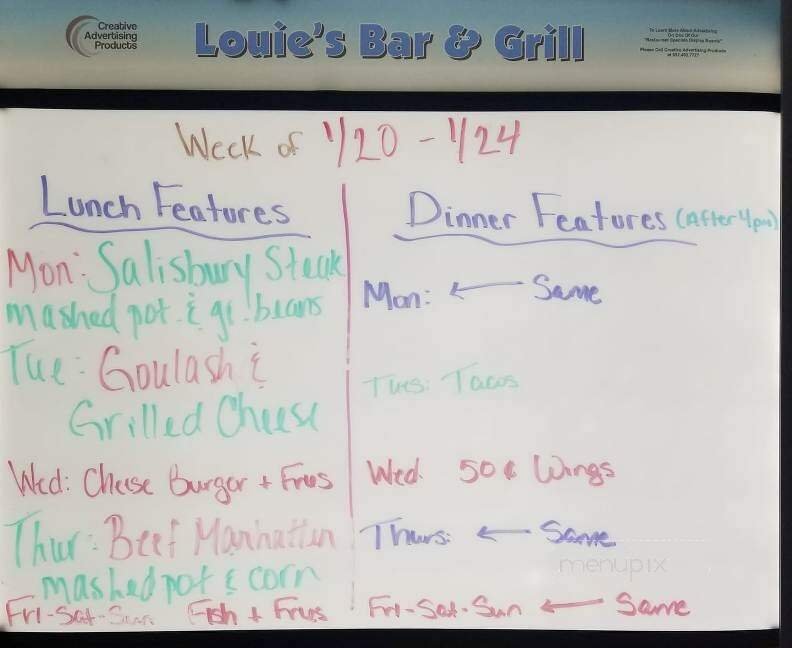 Creative
Advertising
Products
Louie's Bar & Grill
To Learn More About Advertising
On One Of Our
"Restaurant Specials Display Boards"
Please Call Creative Advertising Products
Week of 1/20 - 1/24
Lunch Features
Mon: Salisbury Steak
mashed pot. & gr. beans
Tue: Goulash &
Grilled Cheese
Wed: Cheese Burger + Fries
Thur: Beef Manhattan
mashed pot & corn
Fri-Sat-Sun Fish + Fries
Dinner Features (After 4pm)
Mon: ← Same
Tues: Tacos
Wed. 50¢ Wings
Thurs: ← Same
Fri-Sat-Sun ← Same
menupix